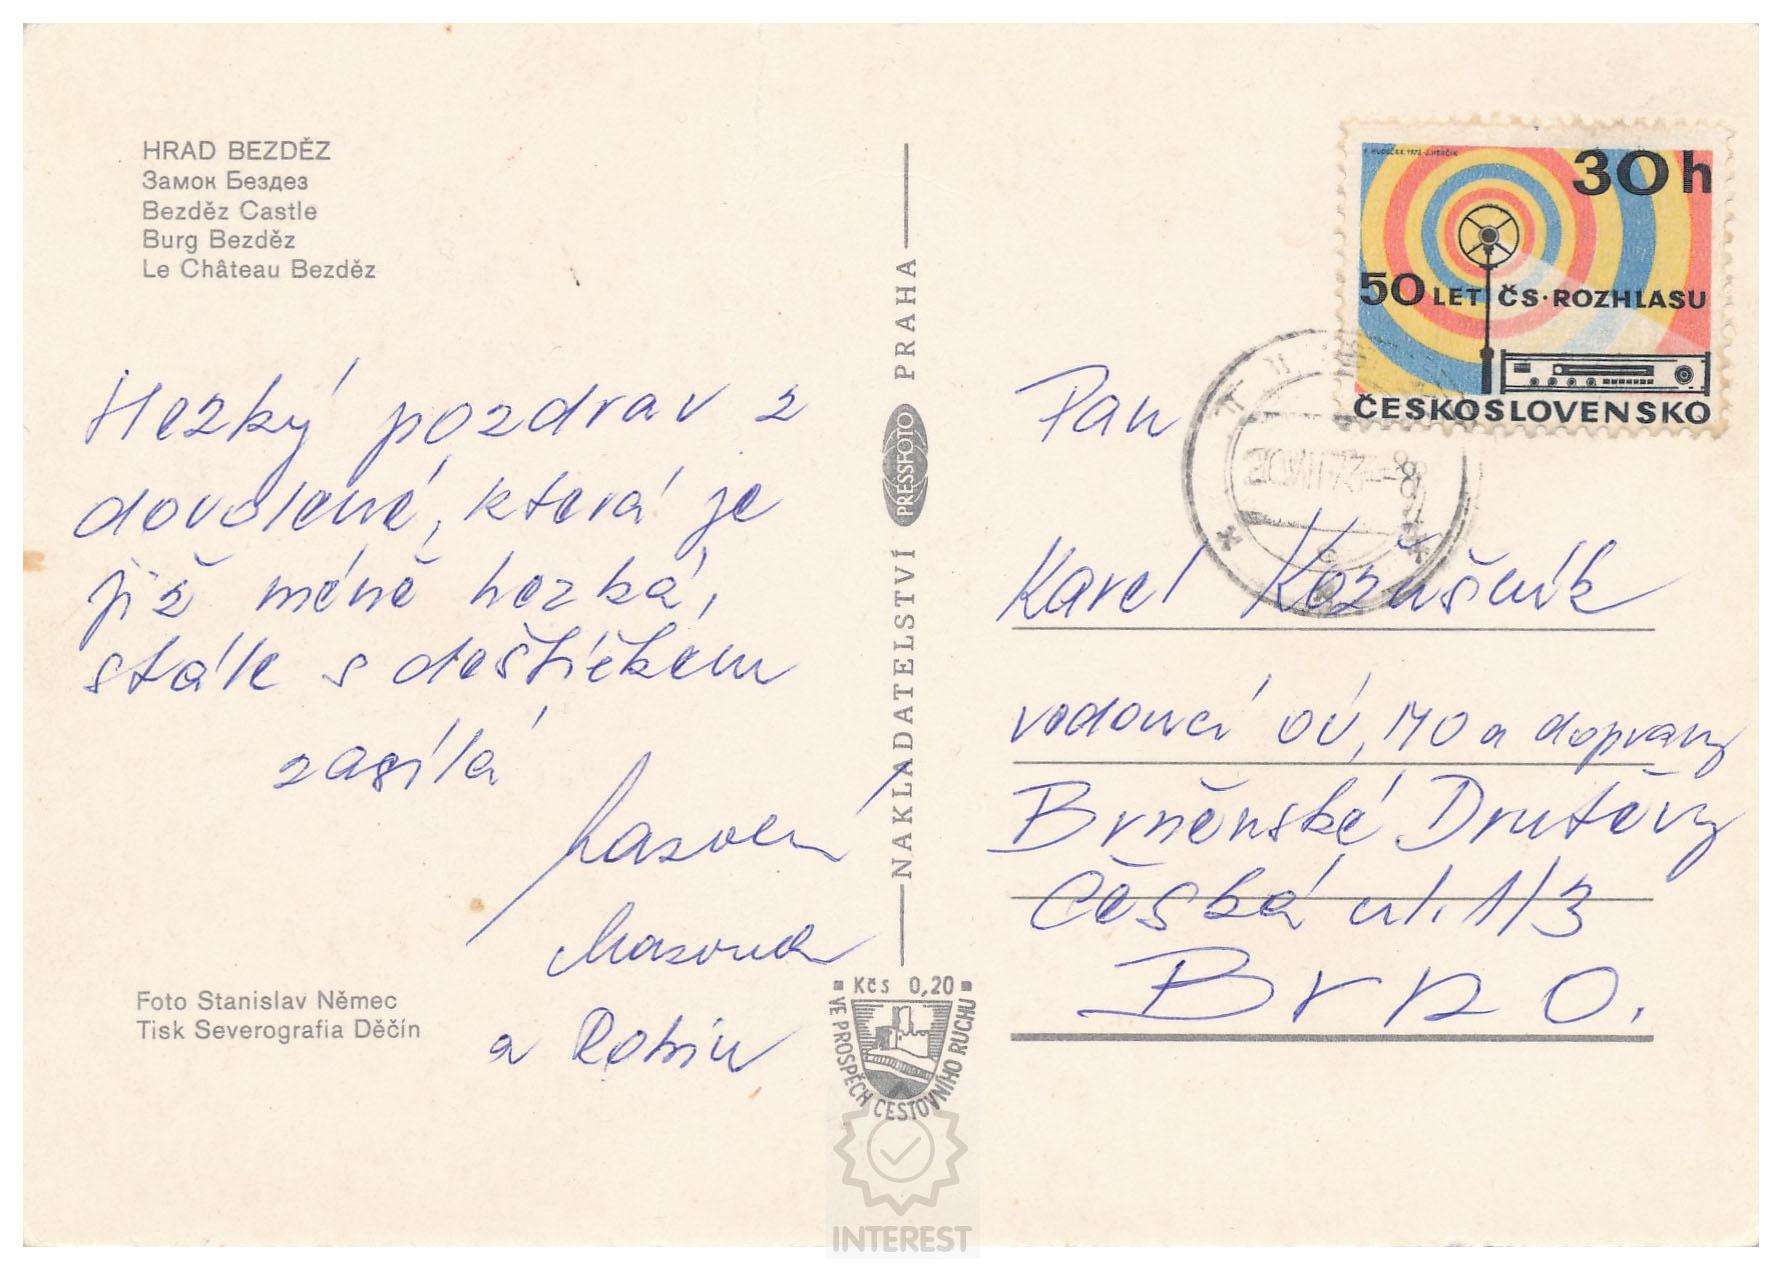 HRAD BEZDĚZ
Замок Бездез
Bezděz Castle
Burg Bezděz
Le Château Bezděz
Hezký pozdrav z
dovolené, která je
již méně hezká,
stále s deštíčkem
zasílá
a Robin
Foto Stanislav Němec
Tisk Severografia Děčín
NAKLADATELSTVÍ PRESSFOTO PRAHA
Kčs 0,20
VE PROSPĚCH CESTOVNÍHO RUCHU
30 h
50 LET ČS·ROZHLASU
ČESKOSLOVENSKO
Pan
Karel Kožušník
vedoucí OÚ, MO a dopravy
Brněnské Drutěvy
Česká ul. 1/3
Brno.
INTEREST